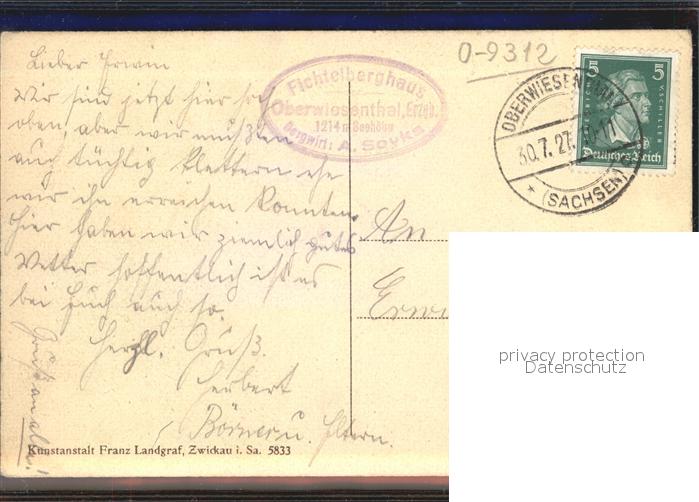 O-9312
Fichtelberghaus
Oberwiesenthal, Erzgb.
1214 m Seehöhe
Bergwirt: A. Soyka
OBERWIESENTHAL
30.7.27.
* (SACHSEN)
5 5
FR. V. SCHILLER
Deutsches Reich
Lieber Erwin
Wir sind jetzt hier hoch
oben, aber wir mußten
auch tüchtig klettern ehe
wir ihn erreichen konnten.
Hier haben wir ziemlich gutes
Wetter hoffentlich ist es
bei Euch auch so.
Herzl. Gruß.
Herbert
Börner u. Eltern.
Gruß an alle!
An
Erwi
Kunstanstalt Franz Landgraf, Zwickau i. Sa. 5833
privacy protection
Datenschutz